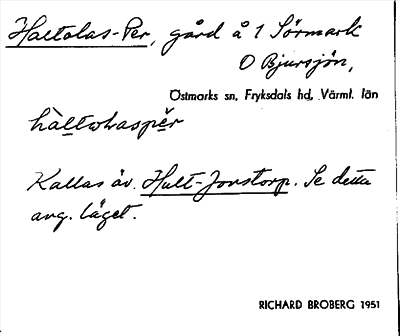 Haltolas-Per, gård å 1 Sörmark
O Bjursjön,
Östmarks sn, Fryksdals hd, Värml. län
hàltωlaspĕr
Kallas äv. Hult-Jonstorp. Se detta
ang. läget.
RICHARD BROBERG 1951